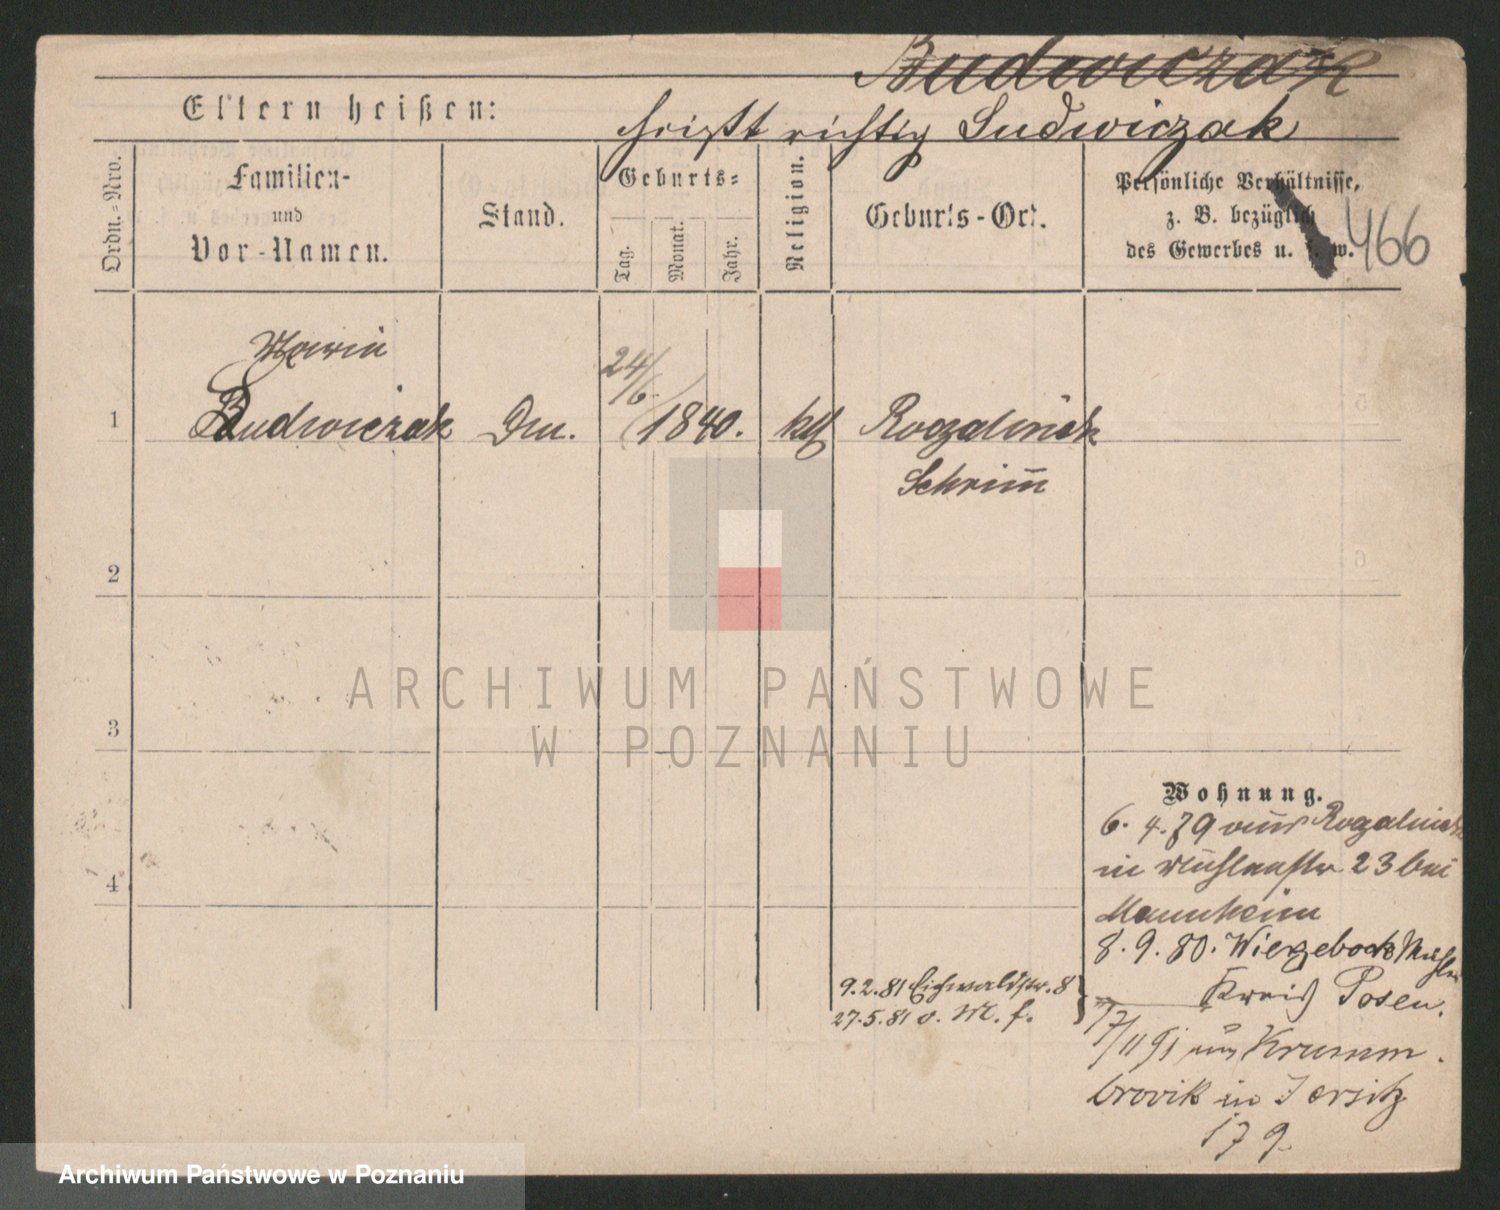 Budwiczak
Eltern heißen:
heißt richtig Ludwiczak
Ordn.-Nro.
Familien-
und
Vor-Namen.
Stand.
Geburts-
Tag.
Monat.
Jahr.
Religion.
Geburts-Ort.
Persönliche Verhältnisse,
z. B. bezüglich
des Gewerbes u. s. w.
466
Maria
1 Budwiczak Dm. 24/6. 1840. kth Rogalinek
Schrimm
2
3
4
Wohnung.
6. 4. 79 aus Rogalinek
in Mühlenstr 23 bei
Mannheim
8. 9. 80. Wierzebock Mühle
Kreis Posen.
9. 2. 81 Eichwaldstr. 8
27. 5. 81 v. M. f.
17/11 91 aus Krumm.
in Jersitz
179
ARCHIWUM PAŃSTWOWE
W POZNANIU
Archiwum Państwowe w Poznaniu